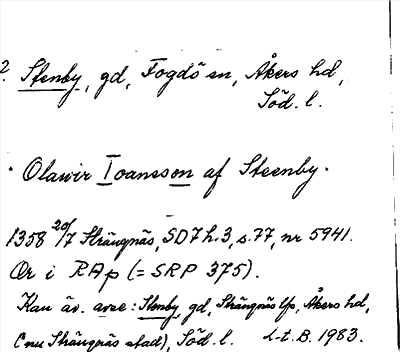 2. Stenby, gd, Fogdö sn, Åkers hd,
Söd. l.
· Olawir Ioansson af Steenby.
1358 20/7 Strängnäs, SD 7 h. 3, s. 77, nr 5941.
Or i RAp (= SRP 375).
Kan äv. avse: Stenby, gd, Strängnäs lfs, Åkers hd,
(nu Strängnäs stad), Söd. l. L-t. B. 1983.